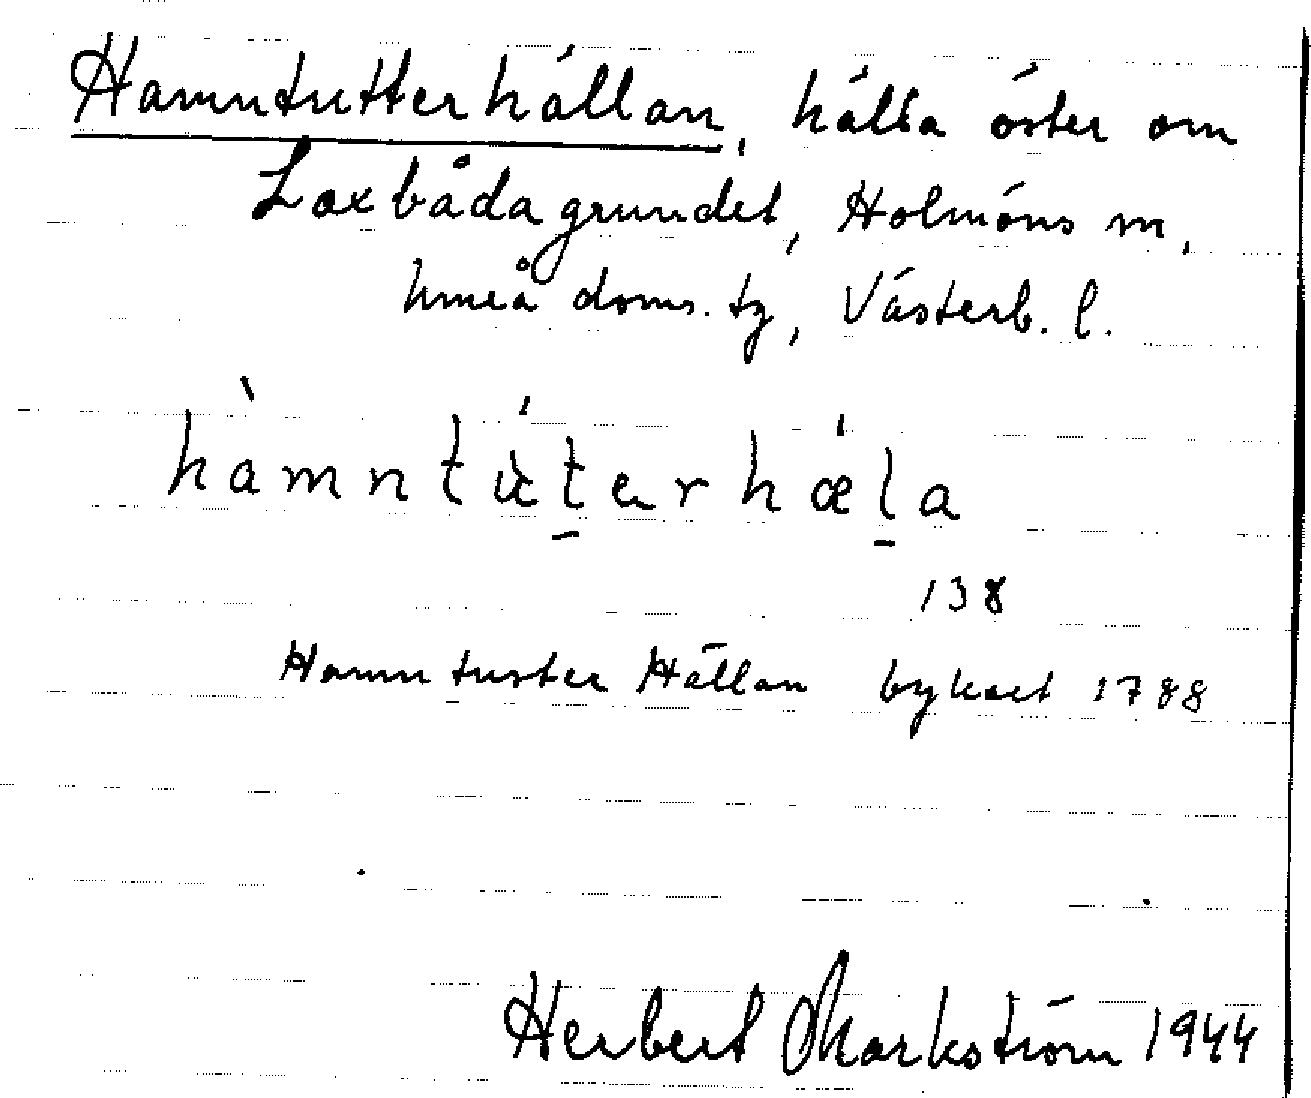 Hamntutterhällan, hälla öster om
Laxbådagrundet, Holmöns sn,
Umeå doms. tg, Västerb. l.
hàmntùterhæla
138
Hamn tutter Hällan bykart 1788
Herbert Markström 1944